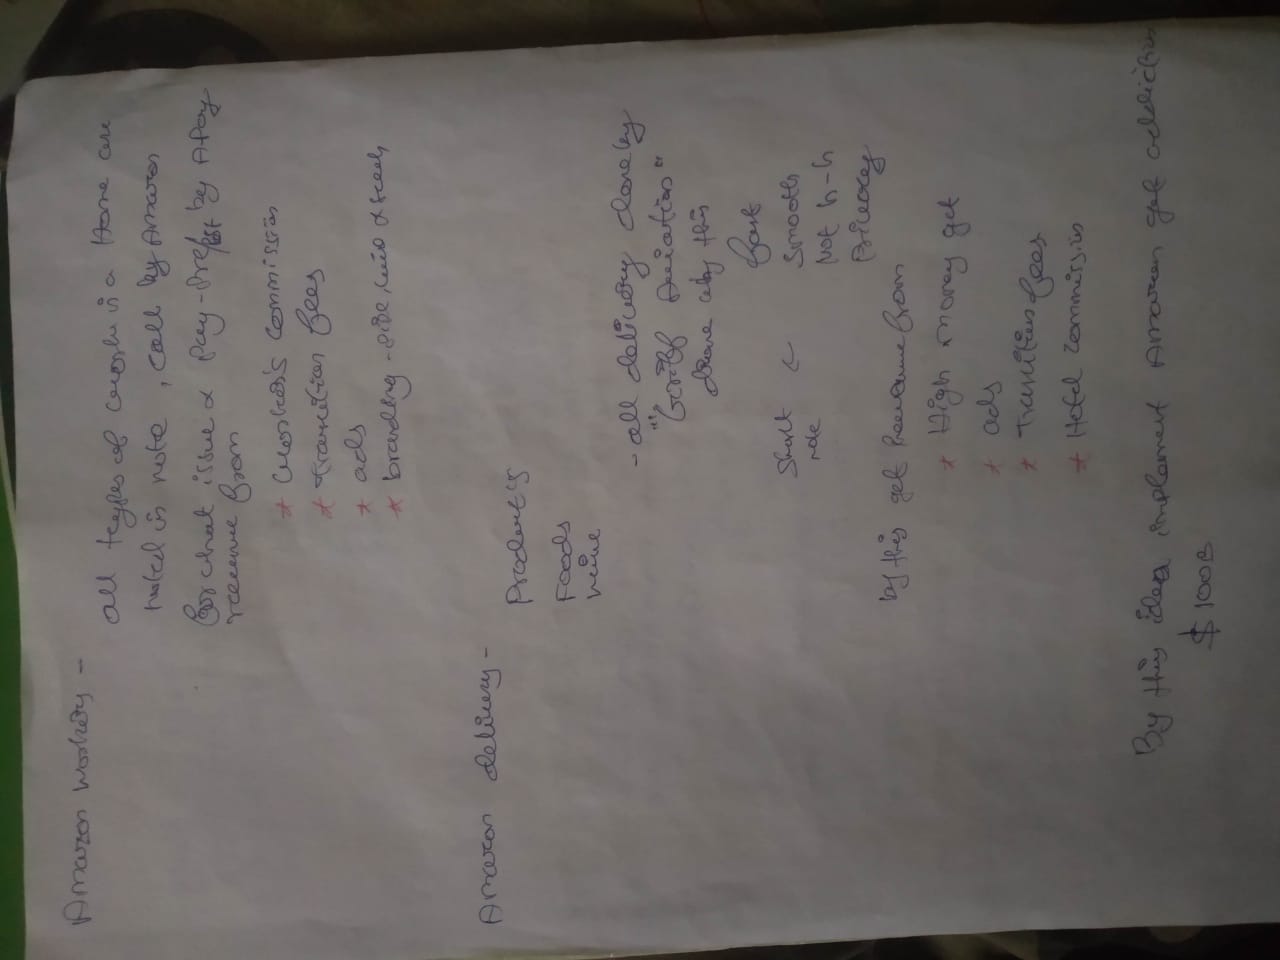 Amazon workers -
all types of work in a Home are
noted in note, call by Amazon
for what issue & Pay - Prefer by APay
revenue from
* worker's commission
* Transition fees
* ads
* branding -
Amazon delivery -
Product's
Foods
wine
- all delivery done by
done why this
Short note <
fast
Smooth
Not h-h
Privacy
by this get Revenue from
* High money get
* ads
* Transition fees
* Hotel commission
By this idea implement Amazon get addition
$ 100B